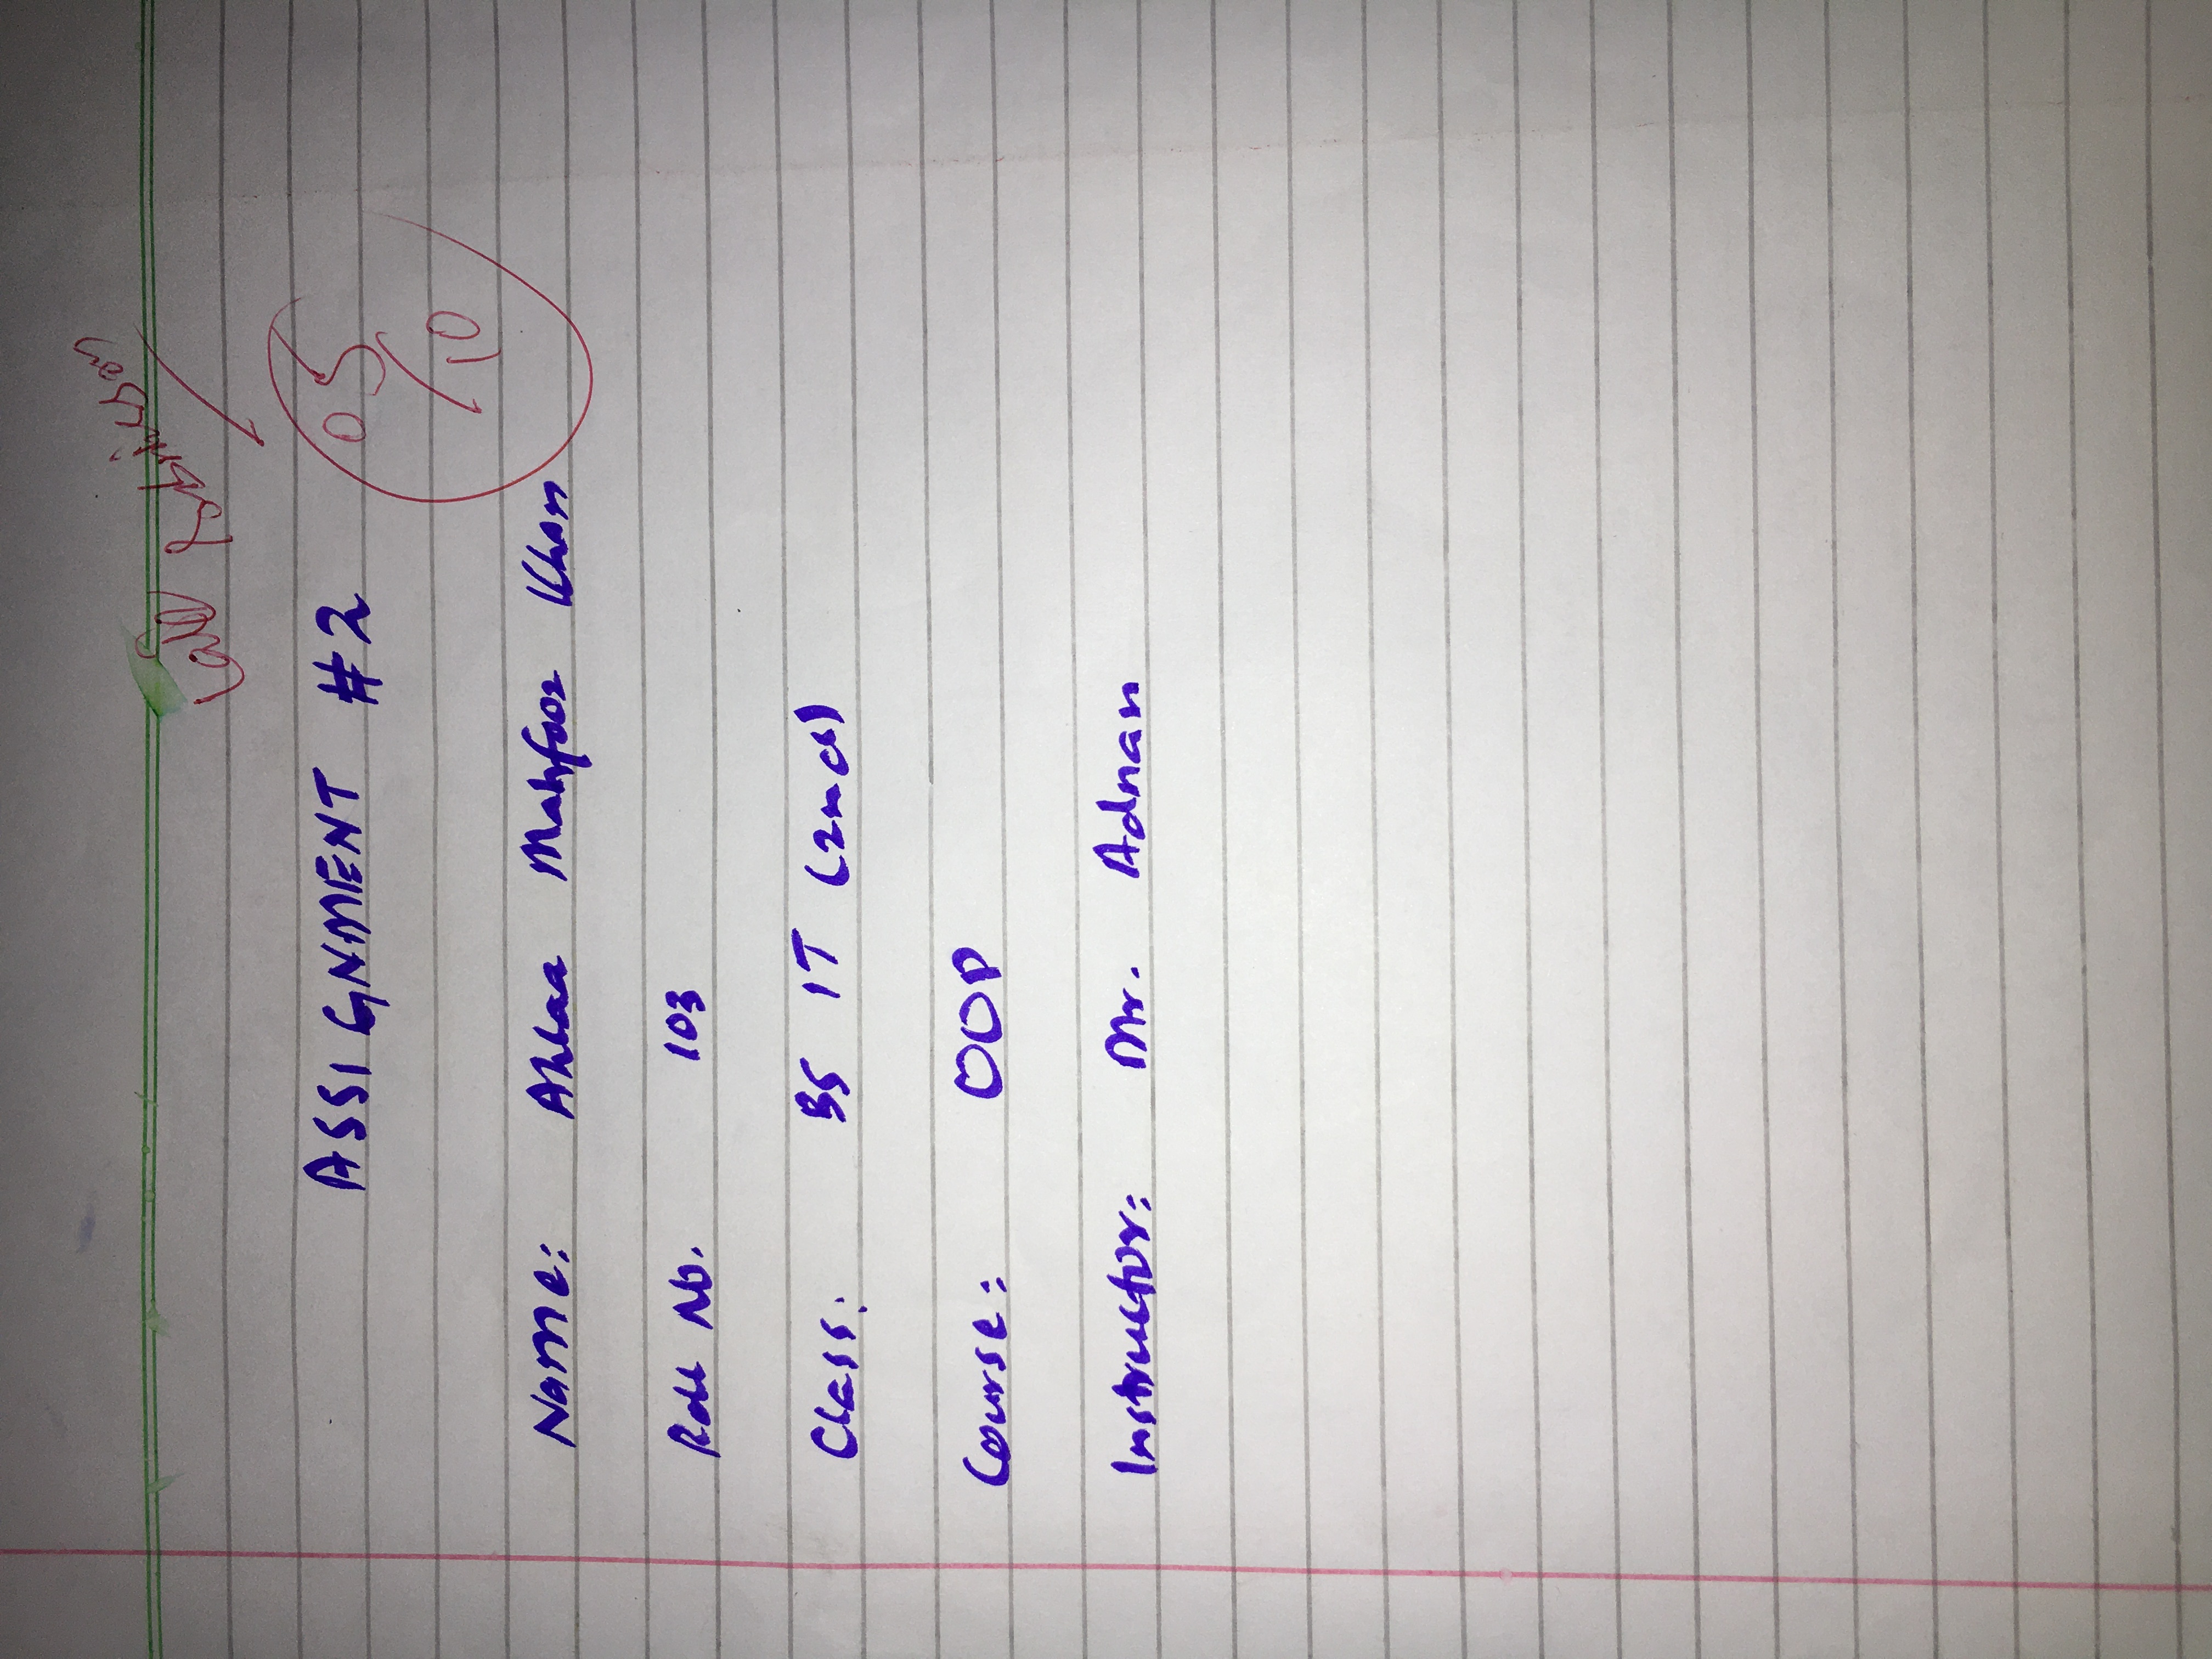 Late Submission
ASSIGNMENT #2
05/10
Name: Mahfooz Khan
Roll No. 103
Class: BS IT (2nd)
Course: OOP
Instructor: Mr. Adnan